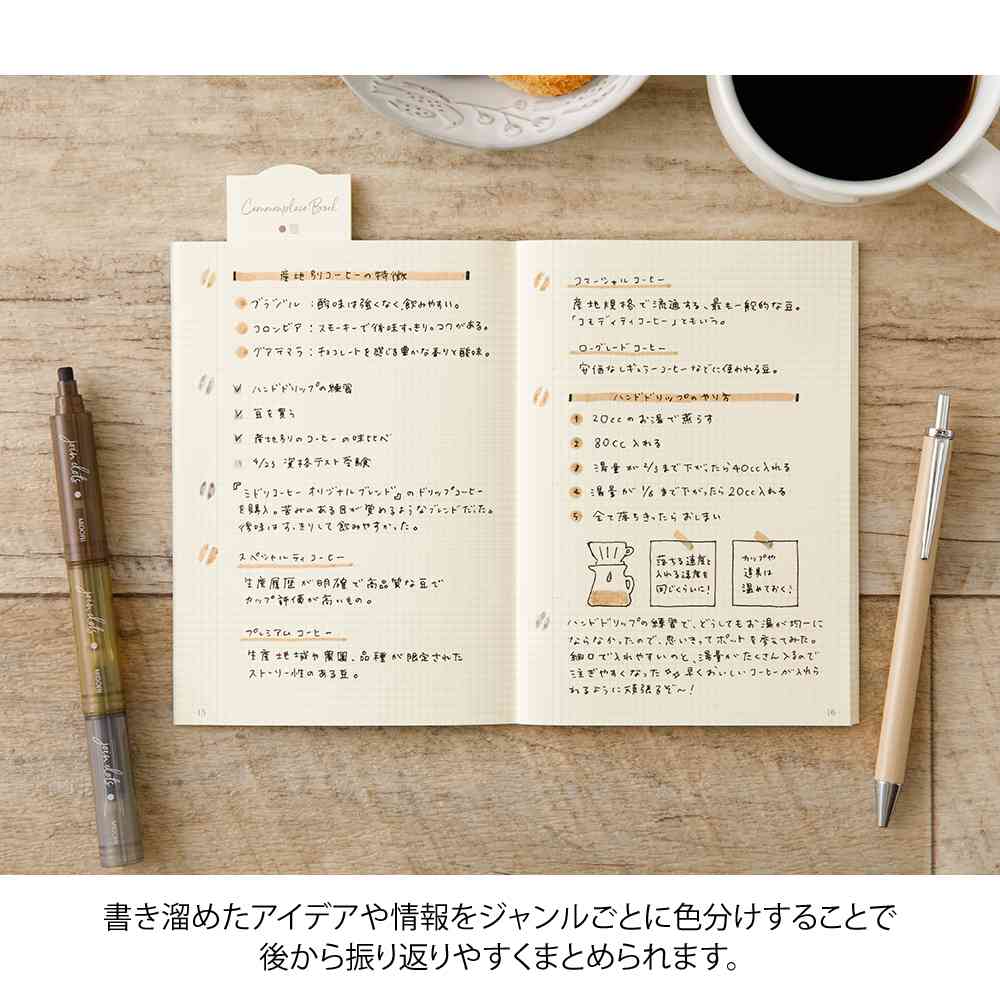 Commonplace Book
産地別コーヒーの特徴
ブラジル：酸味は強くなく、飲みやすい。
コロンビア：スモーキーで後味すっきり。コクがある。
グアテマラ：チョコレートを感じる豊かな香りと酸味。
ハンドドリップの練習
豆を買う
産地別のコーヒーの味比べ
4/23 資格テスト受験
『ミドリコーヒー オリジナルブレンド』のドリップコーヒー
を購入。苦みのある目が覚めるようなブレンドだった。
後味はすっきりして飲みやすかった。
スペシャルティコーヒー
生産履歴が明確で高品質な豆で
カップ評価が高いもの。
プレミアムコーヒー
生産地域や農園、品種が限定された
ストーリー性のある豆。
15
コマーシャルコーヒー
産地規格で流通する、最も一般的な豆。
「コモディティコーヒー」ともいう。
ローグレードコーヒー
安価なレギュラーコーヒーなどに使われる豆。
ハンドドリップのやり方
1 20ccのお湯で蒸らす
2 80cc入れる
3 湯量が2/3まで下がったら40cc入れる
4 湯量が1/6まで下がったら20cc入れる
5 全て落ちきったらおしまい
落ちる速度と
入れる速度を
同じくらいに！
カップや
道具は
温めておく！
ハンドドリップの練習で、どうしてもお湯が均一に
ならなかったので、思いきってポットを変えてみた。
細口で入れやすいのと、湯量がたくさん入るので
注ぎやすくなった 早くおいしいコーヒーが入れら
れるように頑張るぞ〜！
16
MIDORI
MIDORI
MIDORI
書き溜めたアイデアや情報をジャンルごとに色分けすることで
後から振り返りやすくまとめられます。